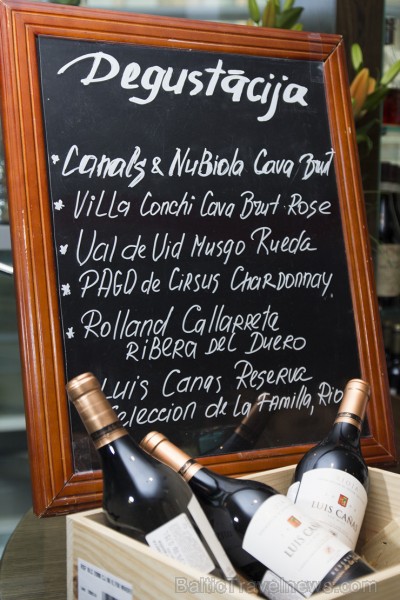 Degustācija
* Canals & Nubiola Cava Brut
* Villa Conchi Cava Brut Rose
* Val de Vid Musgo Rueda
* PAGO de Cirsus Chardonnay
* Rolland Gallarreta
Ribera Del Duero
Luis Canas Reserva
Seleccion de la Familla, Rio
LUIS CAÑAS
LUIS CAÑA
© Travelnews.lv
BalticTravelnews.com